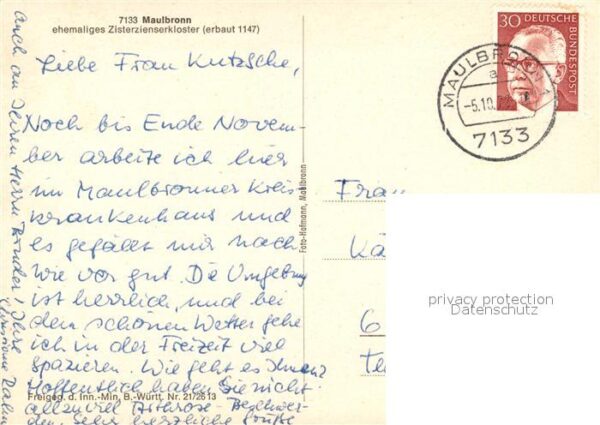 7133 Maulbronn
ehemaliges Zisterzienserkloster (erbaut 1147)
Liebe Frau Kutzsche,
Noch bis Ende Novem-
ber arbeite ich hier
im Maulbronner Kreis-
krankenhaus und
es gefällt mir nach
wie vor gut. Die Umgebung
ist herrlich, und bei
dem schönen Wetter gehe
ich in der Freizeit viel
spazieren. Wie geht es Ihnen?
Hoffentlich haben Sie nicht
allzuviel Arthrose-Beschwer-
den. Sehr herzliche Grüße
auch an Ihren Herrn Bruder! Ihre
Freigeg. d. Inn.-Min. B.-Württ. Nr. 21/2513
Foto-Hofmann, Maulbronn
30 DEUTSCHE BUNDESPOST
MAULBRONN 1
a
-5.10.
7133
Frau
Kä
6
privacy protection
Datenschutz